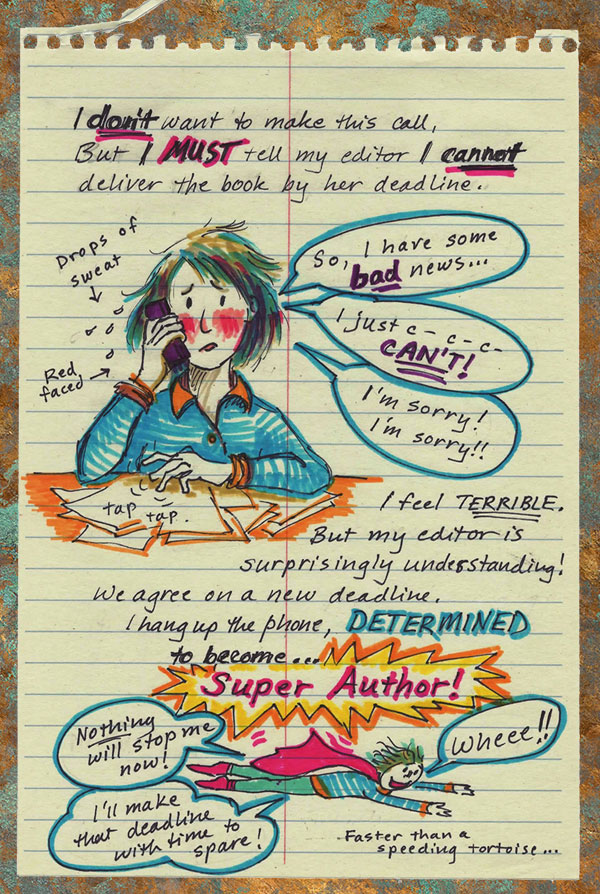 I don't want to make this call,
But I MUST tell my editor I cannot
deliver the book by her deadline.
Drops of
sweat
Red
faced
So, I have some
bad news...
I just c - c - c -
CAN'T!
I'm sorry!
I'm sorry!!
tap tap.
I feel TERRIBLE.
But my editor is
surprisingly understanding!
We agree on a new deadline.
I hang up the phone, DETERMINED
to become...
Super Author!
Nothing
will stop me
now!
Wheee!!
I'll make
that deadline
with time to
spare!
Faster than a
speeding tortoise...